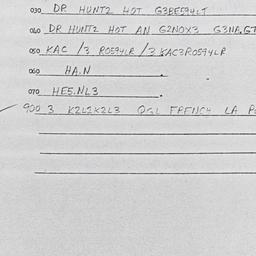 030 DR HUNT2 HOT G3BE594LT
040 DR HUNT2 HOT AN G2NOX3 G3NA.GT
050 KAC /3 R0594LR /3 KAC3R0594LR
060 HA.N .
070 HE5.NL3 .
900 3 K2L2X2L3 FRENCH LA